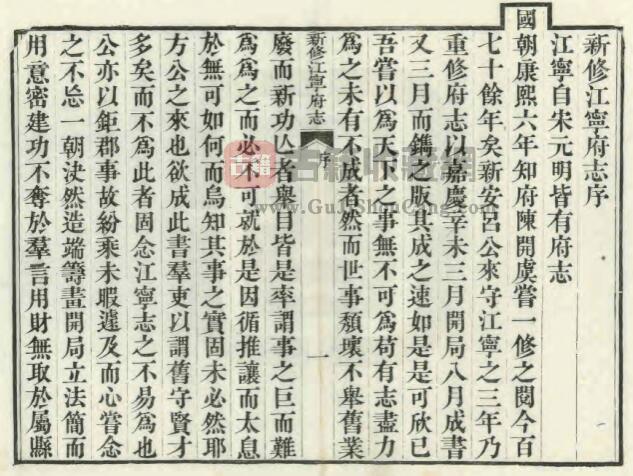 新修江寧府志序
江寧自宋元明皆有府志
國朝康熙六年知府陳開虞嘗一修之閱今百
七十餘年矣新安呂公來守江寧之三年乃
重修府志以嘉慶辛未三月開局八月成書
又三月而鐫之版其成之速如是是可欣已
吾嘗以為天下之事無不可為苟有志盡力
為之未有不成者然而世事頹壞不舉舊業
新修江寧府志 序 一
廢而新功亾者舉目皆是率謂事之巨而難
為為之而必不可就於是因循推讓而太息
於無可如何而烏知其事之實固未必然耶
方公之來也欲成此書羣吏以謂舊守賢才
多矣而不為此者固念江寧志之不易為也
公亦以鉅郡事故紛乘未暇遽及而心嘗念
之不忘一朝決然造端籌畫開局立法簡而
用意密建功不奪於羣言用財無取於屬縣
古籍
古籍收藏網
www.GuJiShouCang.com